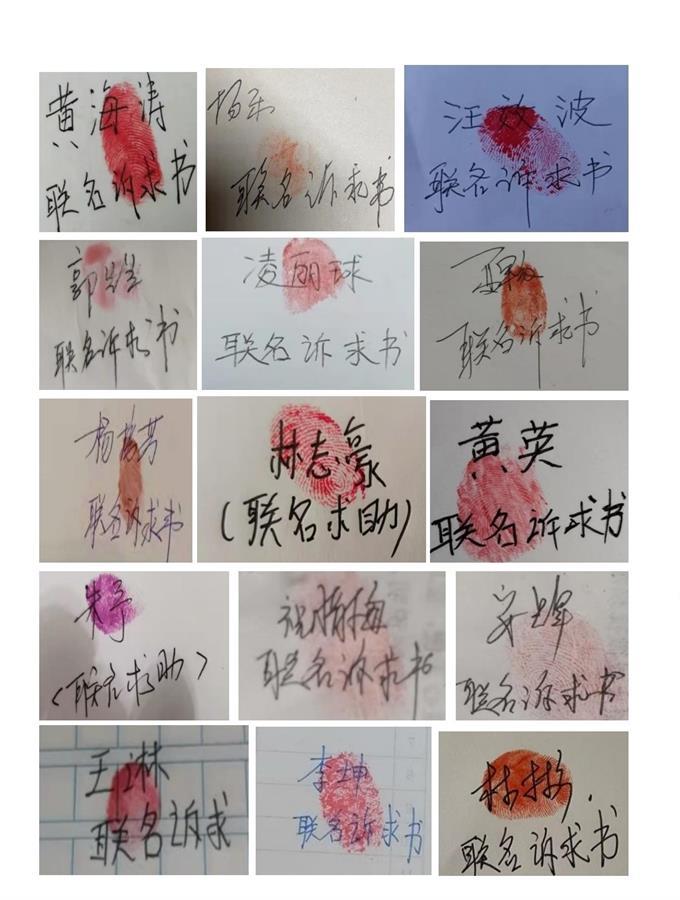 黄海涛
联名诉求书
联名诉求书
汪效波
联名诉求书
郭
联名诉求书
凌丽球
联名诉求书
联名诉求书
杨
联名诉求书
林志豪
(联名求助)
黄英
联名诉求书
朱
(联名求助)
祝
联名诉求书
联名诉求书
王淋
联名诉求
李坤
联名诉求书
林
联名诉求书